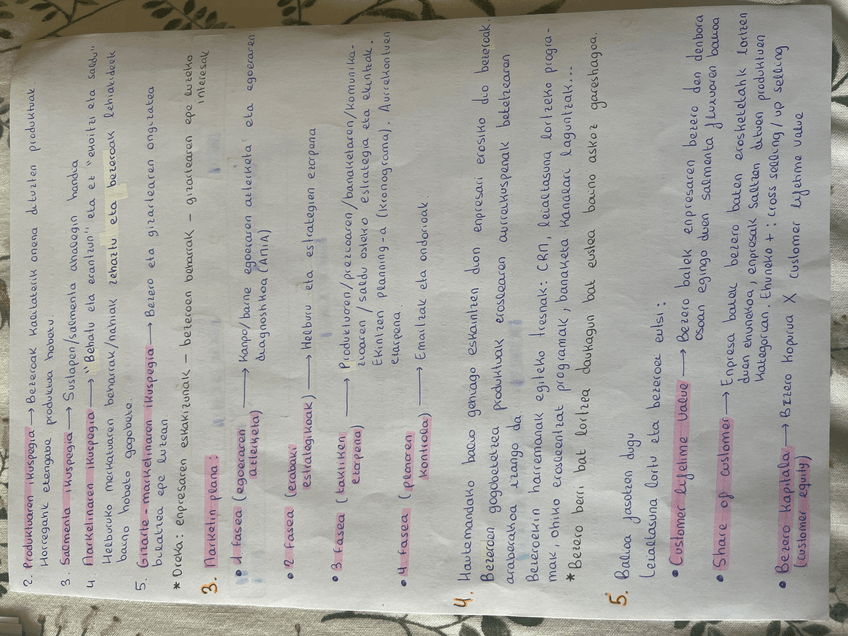 2. Produktuaren ikuspegia → Bezeroak kalitaterik onena dituzten produktuak
Horregatik etengabe produktua hobetu.
3. Salmenta ikuspegia → Sustapen/salmenta ahalegin handia
4. Marketinaren ikuspegia → "Behatu eta erantzun" eta ez "ekoitzi eta saldu"
Helburuko merkatuaren beharrak/nahiak zehaztu eta bezeroak lehiakideek
baino hobeto gogobete.
5. Gizarte-marketinaren ikuspegia → Bezero eta gizartearen ongizatea
bilatzea epe luzean
* Oreka: enpresaren eskakizunak – bezeroen beharrak – gizartearen epe luzeko
interesak
3. Marketin plana:
• 1 fasea (egoeraren azterketa) → Kanpo/barne egoeraren azterketa eta egoeraren
diagnostikoa (AMIA)
• 2 fasea (erabaki estrategikoak) → Helburu eta estrategien ezarpena
• 3 fasea (taktiken ezarpena) → Produktuaren/prezioaren/banaketaren/komunika-
zioaren/saldu osteko estrategia eta ekintzak.
Ekintzen planning-a (kronograma). Aurrekontuen
ezarpena.
• 4 fasea (planaren kontrola) → Emaitzak eta ondorioak
4. Hautemandako balio gehiago eskaintzen dion enpresari erosiko dio bezeroak
Bezeroen gogobetetzea produktuak eroslearen aurreikuspenak betetzearen
araberakoa izango da
Bezeroekin harremanak egiteko tresnak: CRM, leialtasuna lortzeko progra-
mak, ohiko erosleentzat programak, banaketa kanalari laguntzak...
* Bezero berri bat lortzea daukagun bat eustea baino askoz garestiagoa.
5. Balioa jasotzen dugu
Leialtasuna lortu eta bezeroei eutsi:
• Customer lifetime value → Bezero batek enpresaren bezero den denbora
osoan egingo duen salmenta fluxuaren balioa
• Share of customer → Enpresa batek bezero baten erosketetatik lortzen
duen ehunekoa, enpresak saltzen dituen produktuen
kategorian. Ehuneko +: cross selling/up selling
• Bezero kapitala (customer equity) → Bezero kopurua X customer lifetime value